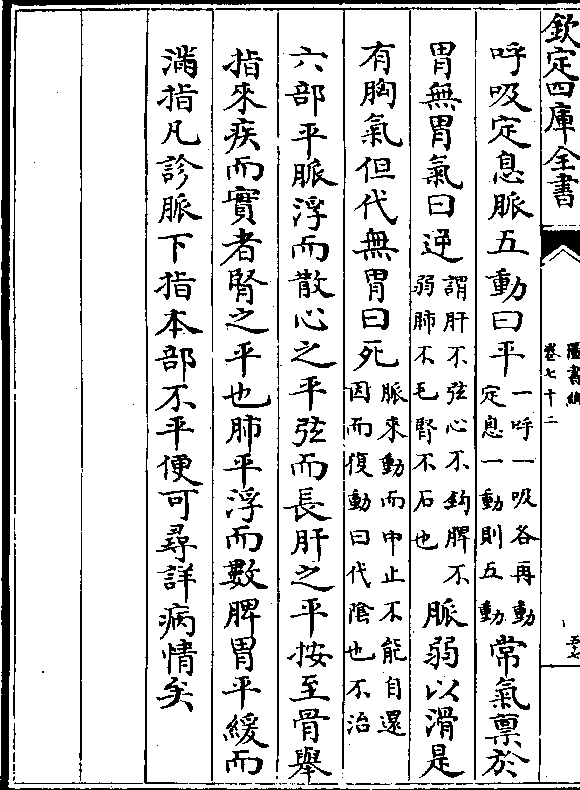 欽定四庫全書
圖書編
卷七十二
呼吸定息脈五動曰平一呼一吸各再動定息一動則五動常氣禀於
胃無胃氣曰逆謂肝不弦心不鈎脾不弱肺不毛腎不石也脈弱以滑是
有胸氣但代無胃曰死脈來動而中止不能自還因而復動曰代隂也不治
六部平脈浮而散心之平弦而長肝之平按至骨舉
指來疾而實者腎之平也肺平浮而數脾胃平緩而
滿指凡診脈下指本部不平便可尋詳病情矣